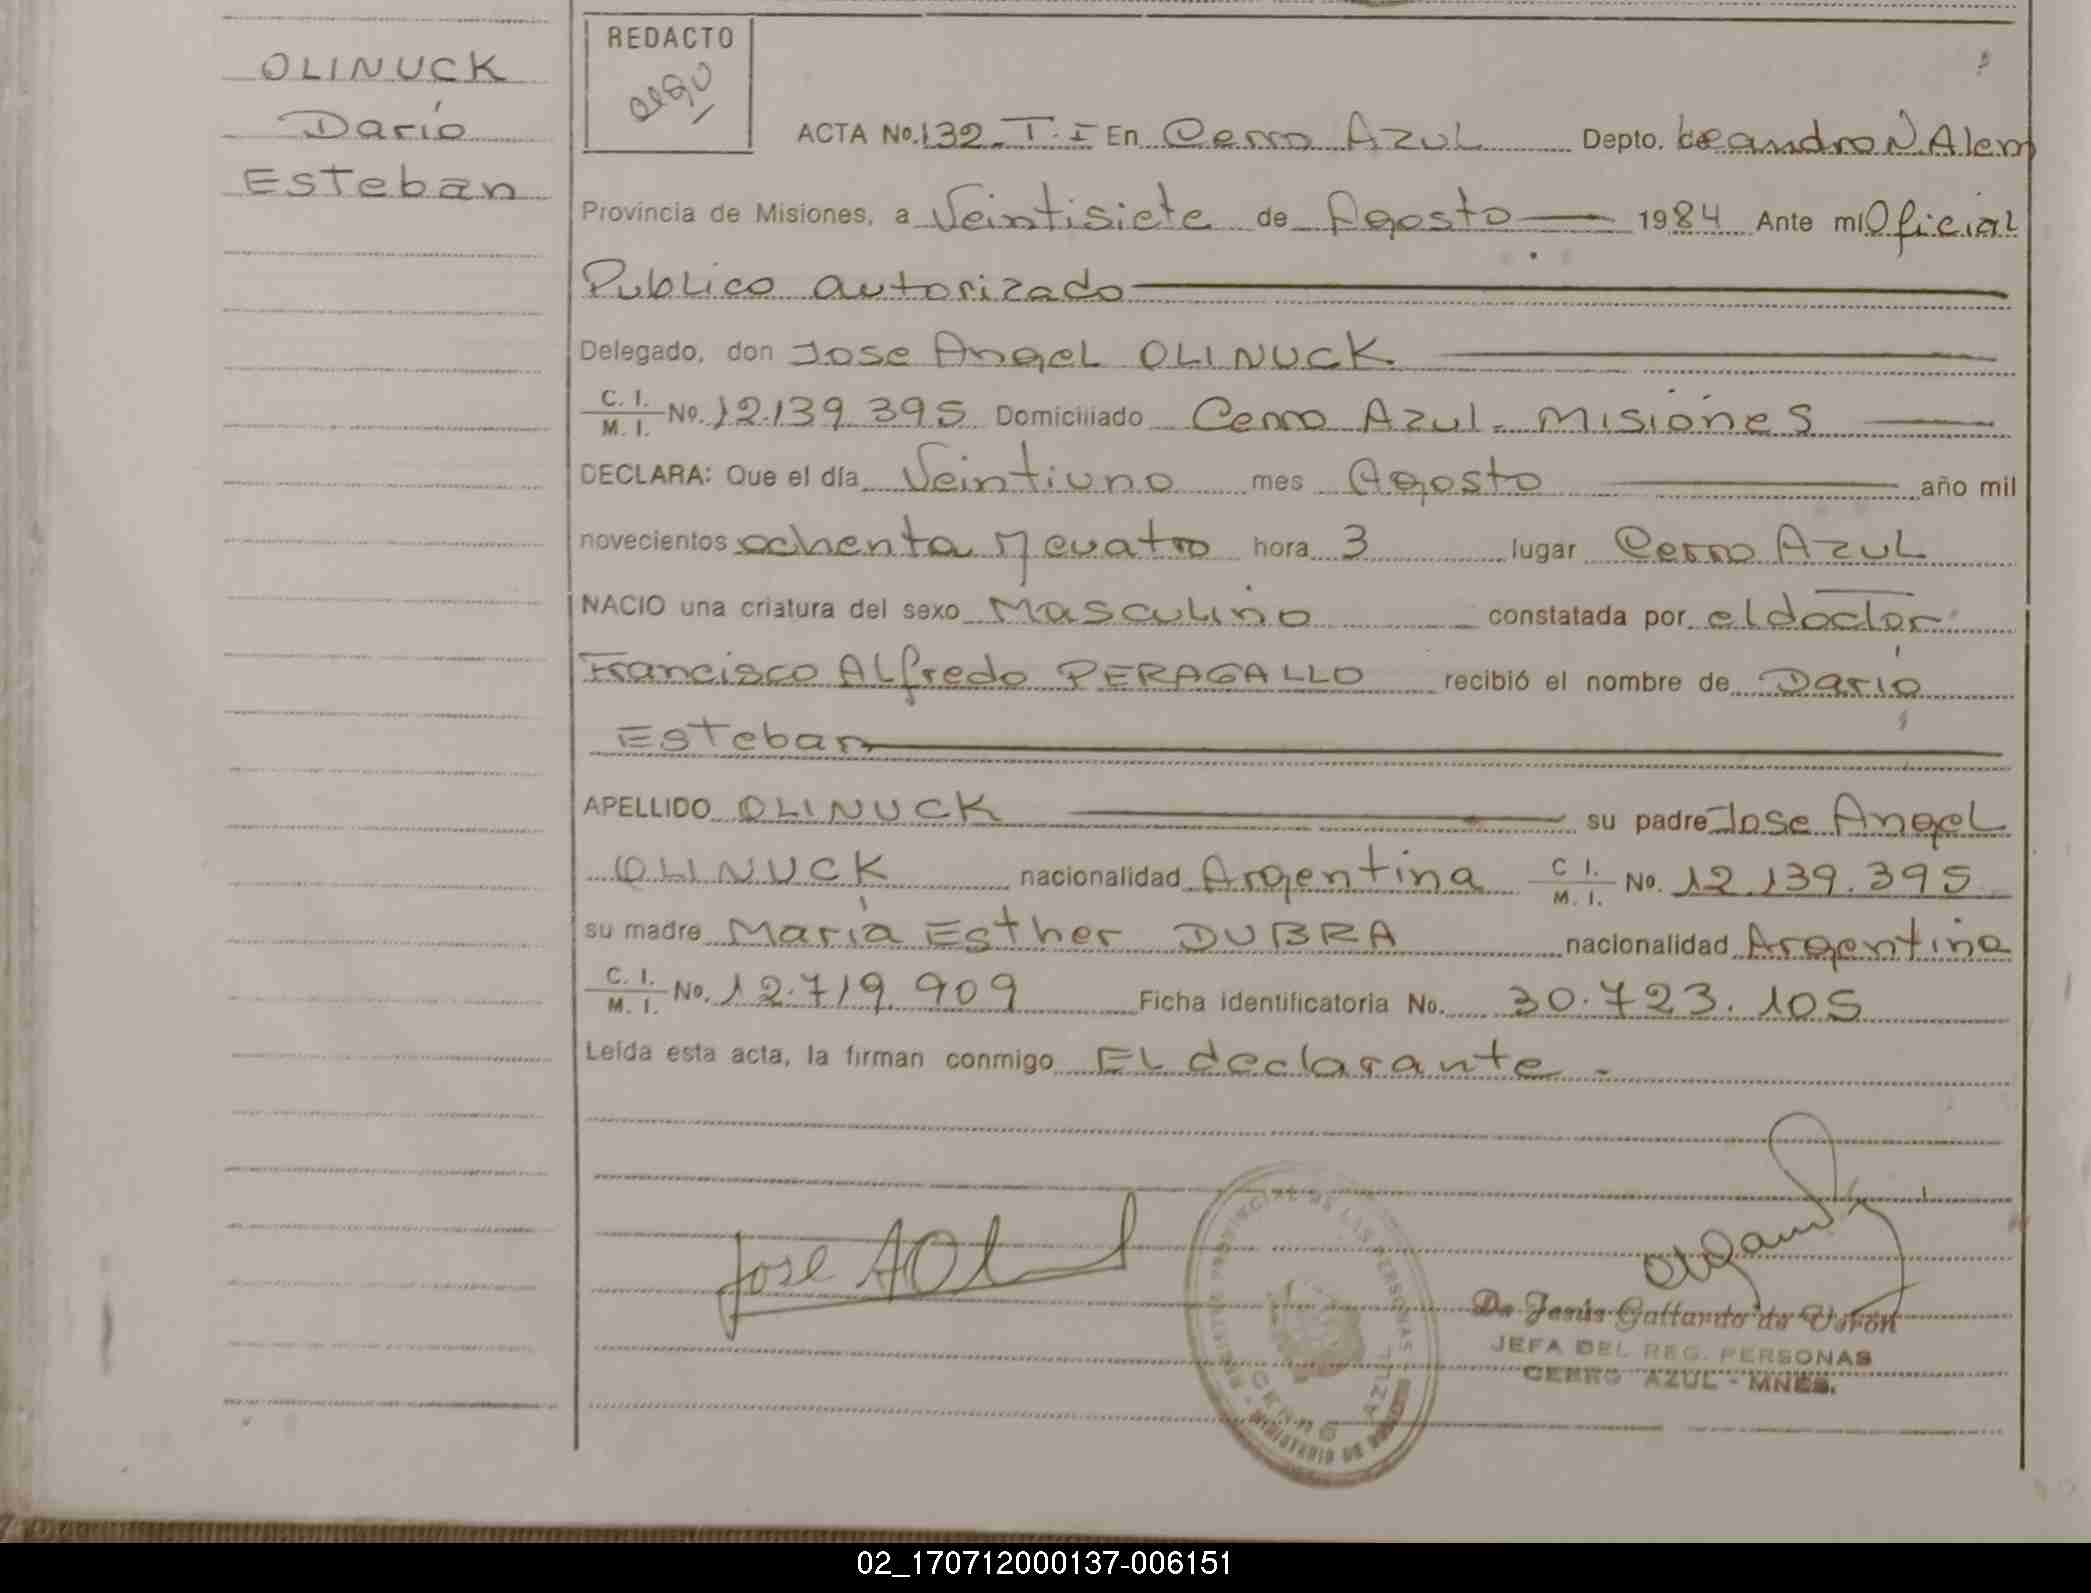 OLINUCK
Darío
Esteban
REDACTO
ACTA No. 132. T. I En Cerro Azul Depto. Leandro N. Alem
Provincia de Misiones, a Veintisiete de Agosto 1984 Ante mí Oficial
Publico autorizado
Delegado, don Jose Angel OLINUCK.
C. I.
M. I. No. 12.139.395 Domiciliado Cerro Azul. Misiones
DECLARA: Que el día Veintiuno mes Agosto año mil
novecientos ochenta y cuatro hora 3 lugar Cerro Azul
NACIO una criatura del sexo Masculino constatada por el doctor
Francisco Alfredo PERAGALLO recibió el nombre de Darío
Esteban
APELLIDO OLINUCK su padre Jose Angel
OLINUCK nacionalidad Argentina C I. M. I. No. 12.139.395
su madre María Esther DUBRA nacionalidad Argentina
C. I.
M. I. No. 12.719.909 Ficha identificatoria No. 30.723.105
Leída esta acta, la firman conmigo El declarante.
Jose
PROVINCIAL DE LAS PERSONAS
CERRO AZUL
MINISTERIO DE
De Jesús Gallardo de
JEFA DEL REG. PERSONAS
CERRO AZUL - MNES.
02_170712000137-006151